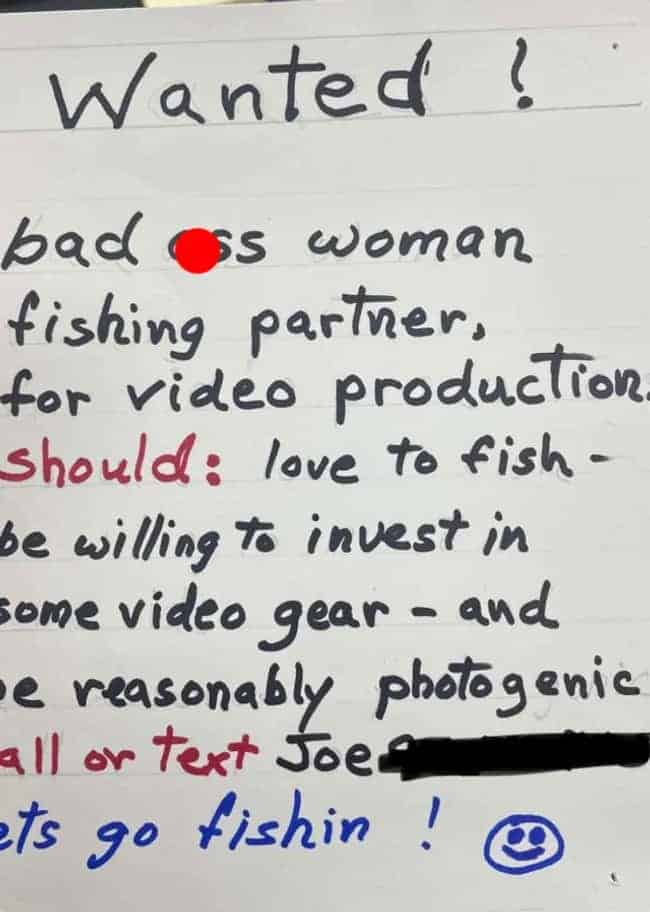 Wanted !
bad ss woman
fishing partner,
for video production.
should: love to fish -
be willing to invest in
some video gear - and
e reasonably photogenic
all or text Joe
ets go fishin !